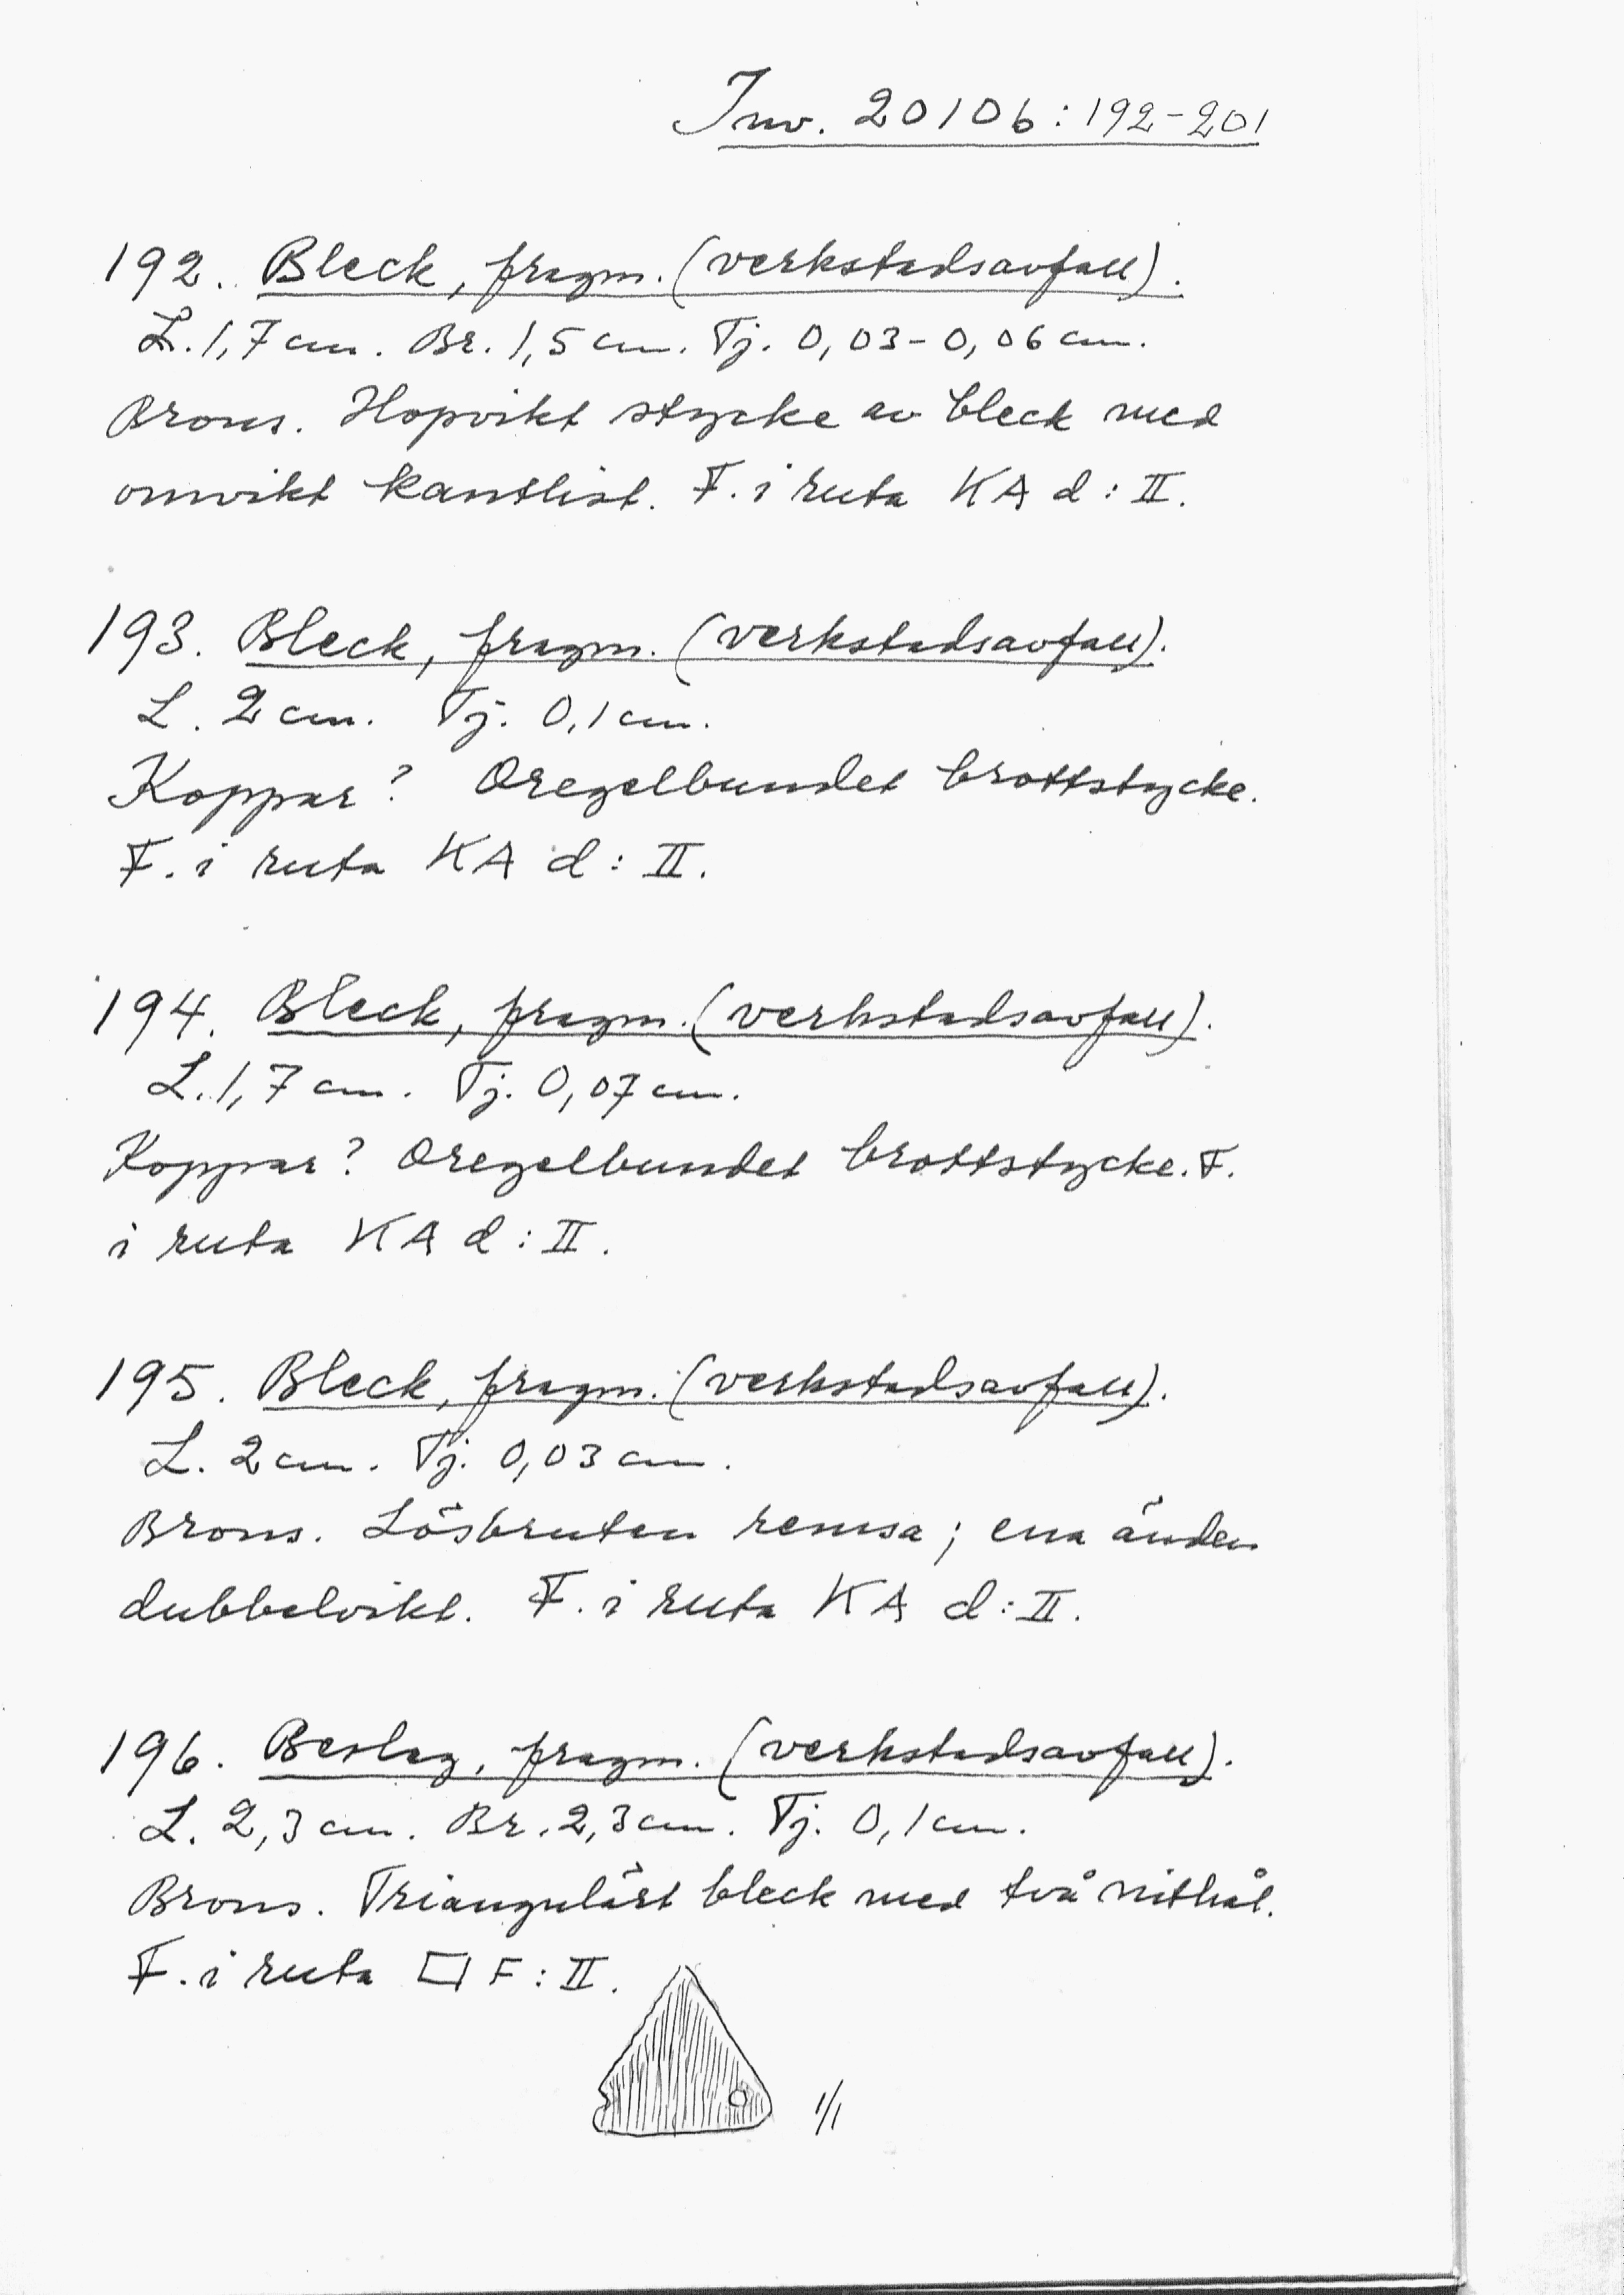 Inv. 20106:192-201
192. Bleck, fragm. (verkstadsavfall).
L. 1,7 cm. Br. 1,5 cm. Tj. 0,03-0,06 cm.
Brons. Hopvikt stycke av bleck med
omvikt kantlist. F. i ruta KA d:II.
193. Bleck, fragm. (verkstadsavfall).
L. 2 cm. Tj. 0,1 cm.
Koppar? Oregelbundet brottstycke.
F. i ruta KA d:II.
194. Bleck, fragm. (verkstadsavfall).
L. 1,7 cm. Tj. 0,07 cm.
Koppar? Oregelbundet brottstycke. F.
i ruta KA d:II.
195. Bleck, fragm. (verkstadsavfall).
L. 2 cm. Tj. 0,03 cm.
Brons. Lösbruten remsa; ena änden
dubbelvikt. F. i ruta KA d:II.
196. Beslag, fragm. (verkstadsavfall).
L. 2,3 cm. Br. 2,3 cm. Tj. 0,1 cm.
Brons. Triangulärt bleck med två nithål.
F. i ruta F:II.
1/1